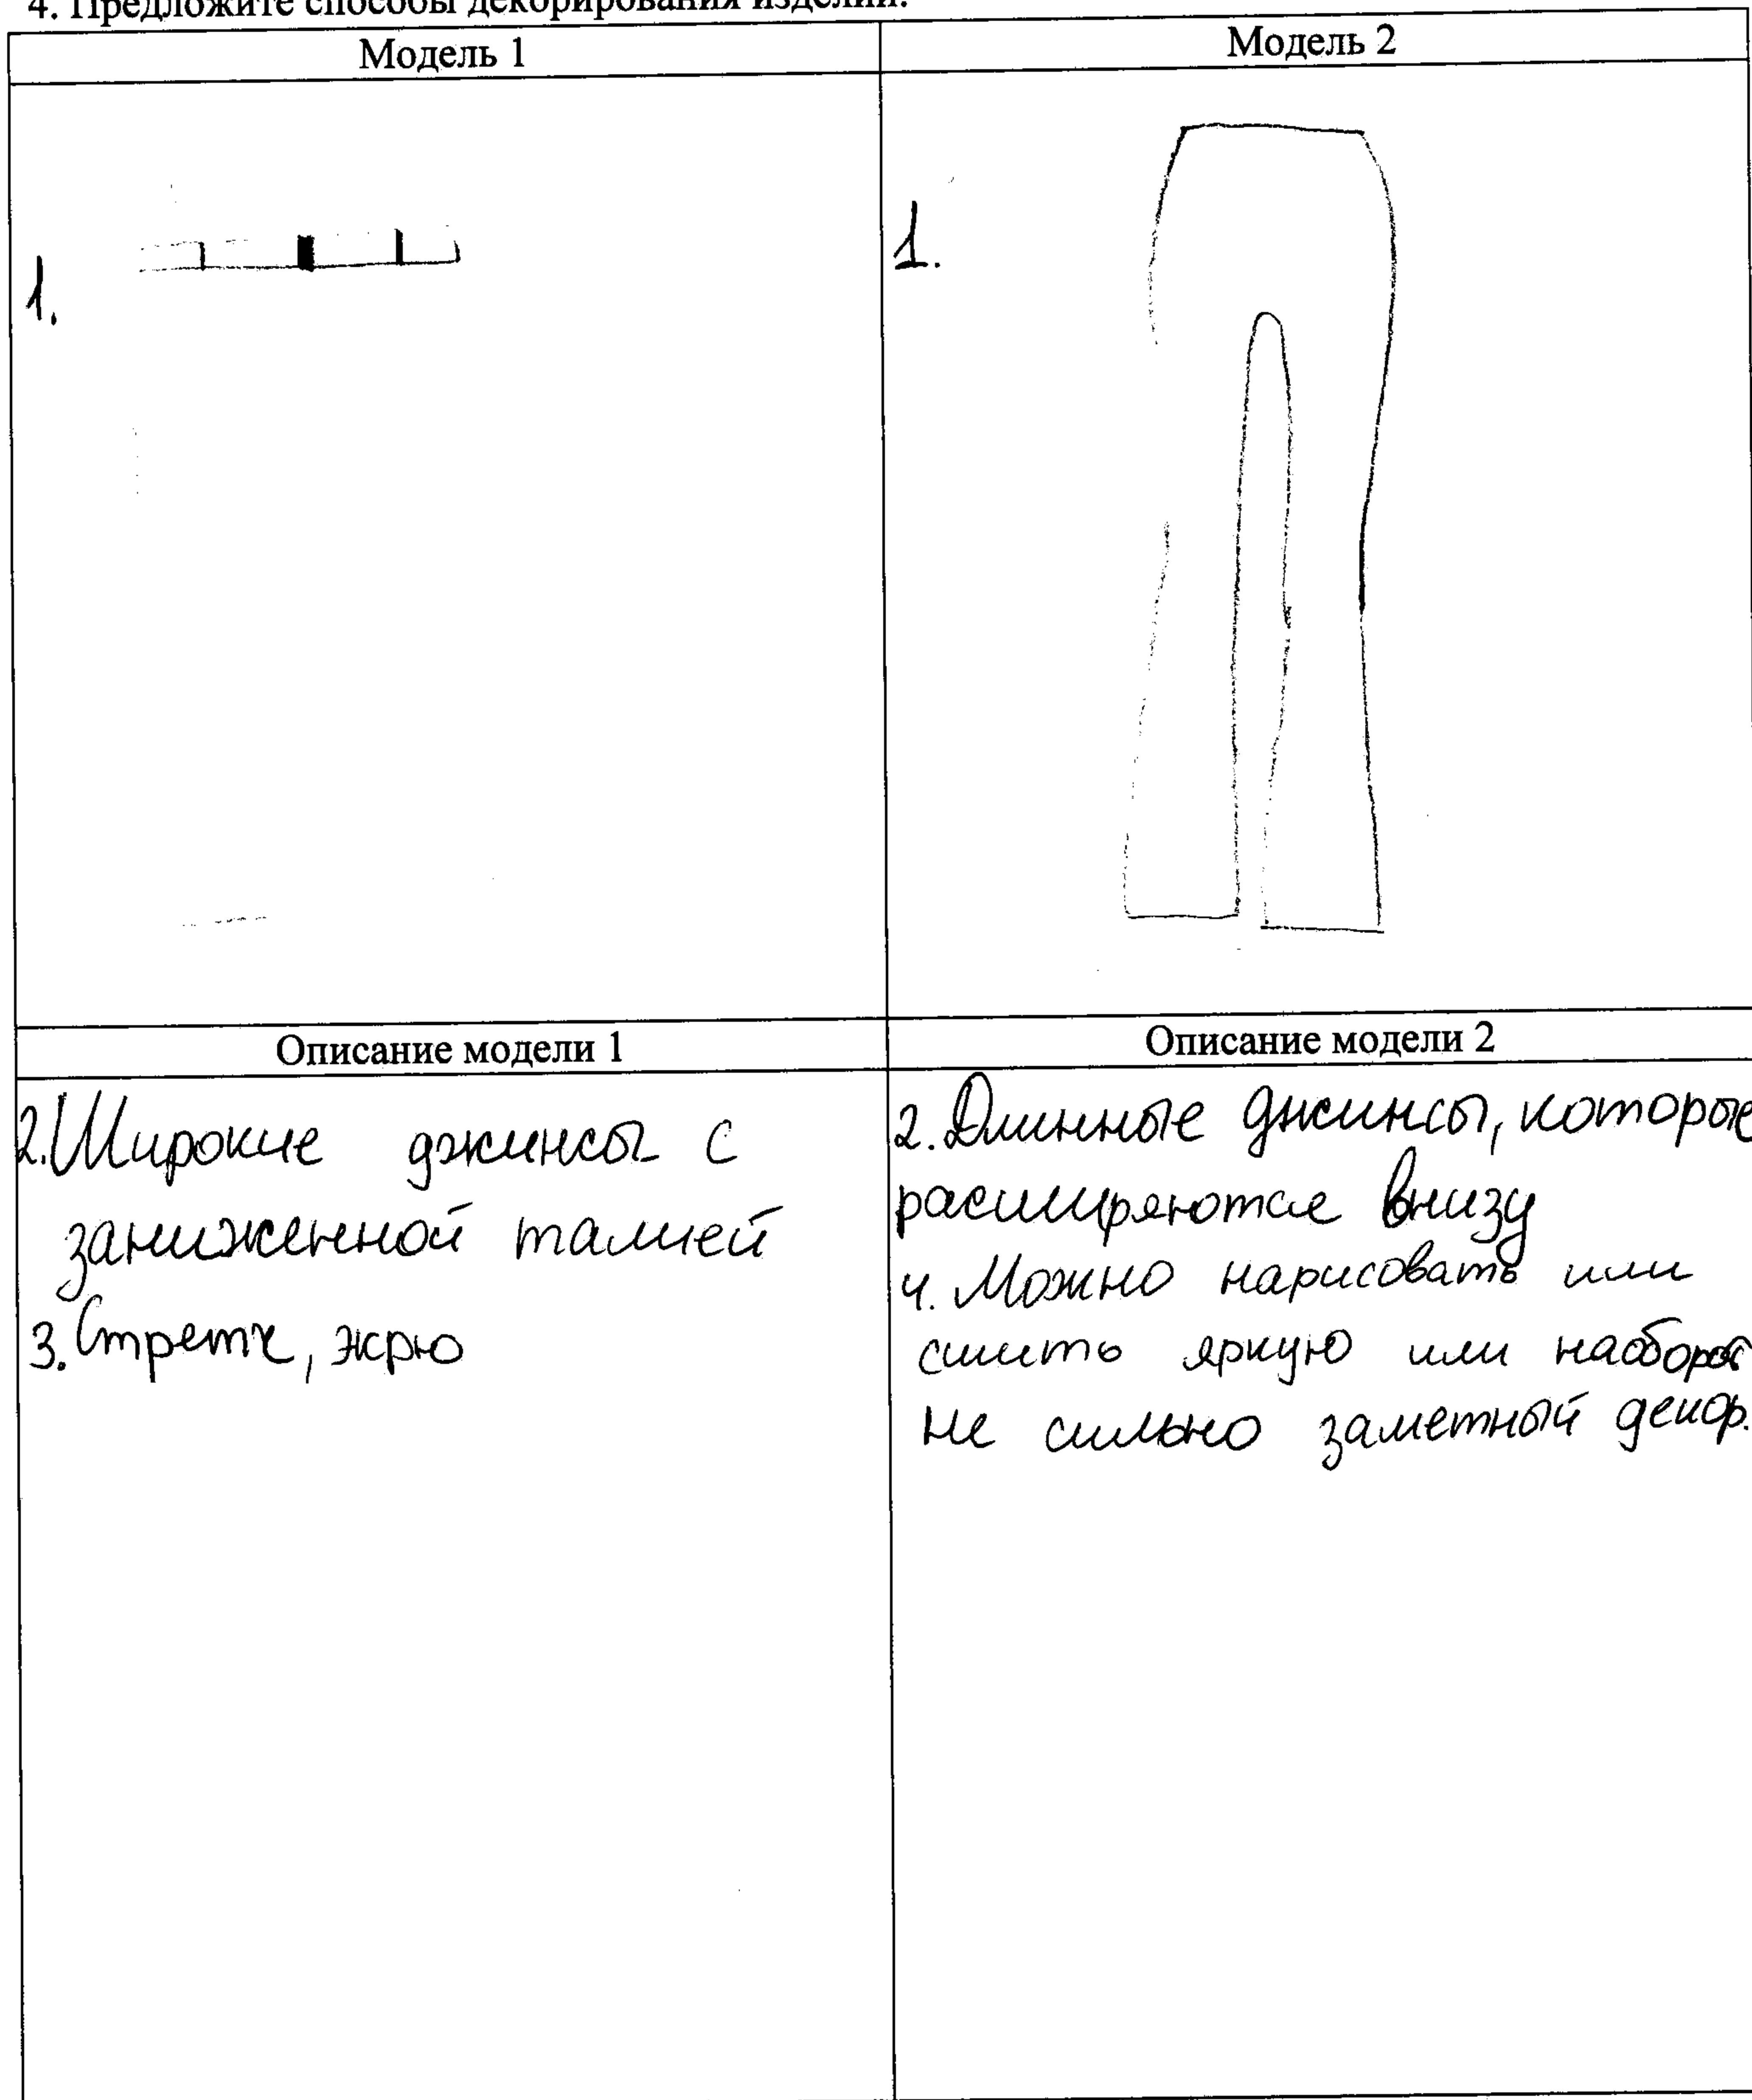 4. Предложите способы декорирования изделий.
Модель 1
Модель 2
1.
1.
Описание модели 1
Описание модели 2
2. Широкие джинсы с
заниженной талией
3. Стретч, экрю
2. Длинные джинсы, которые
расширяются внизу
4. Можно нарисовать или
сшить яркую или наоборот
не сильно заметный декор.